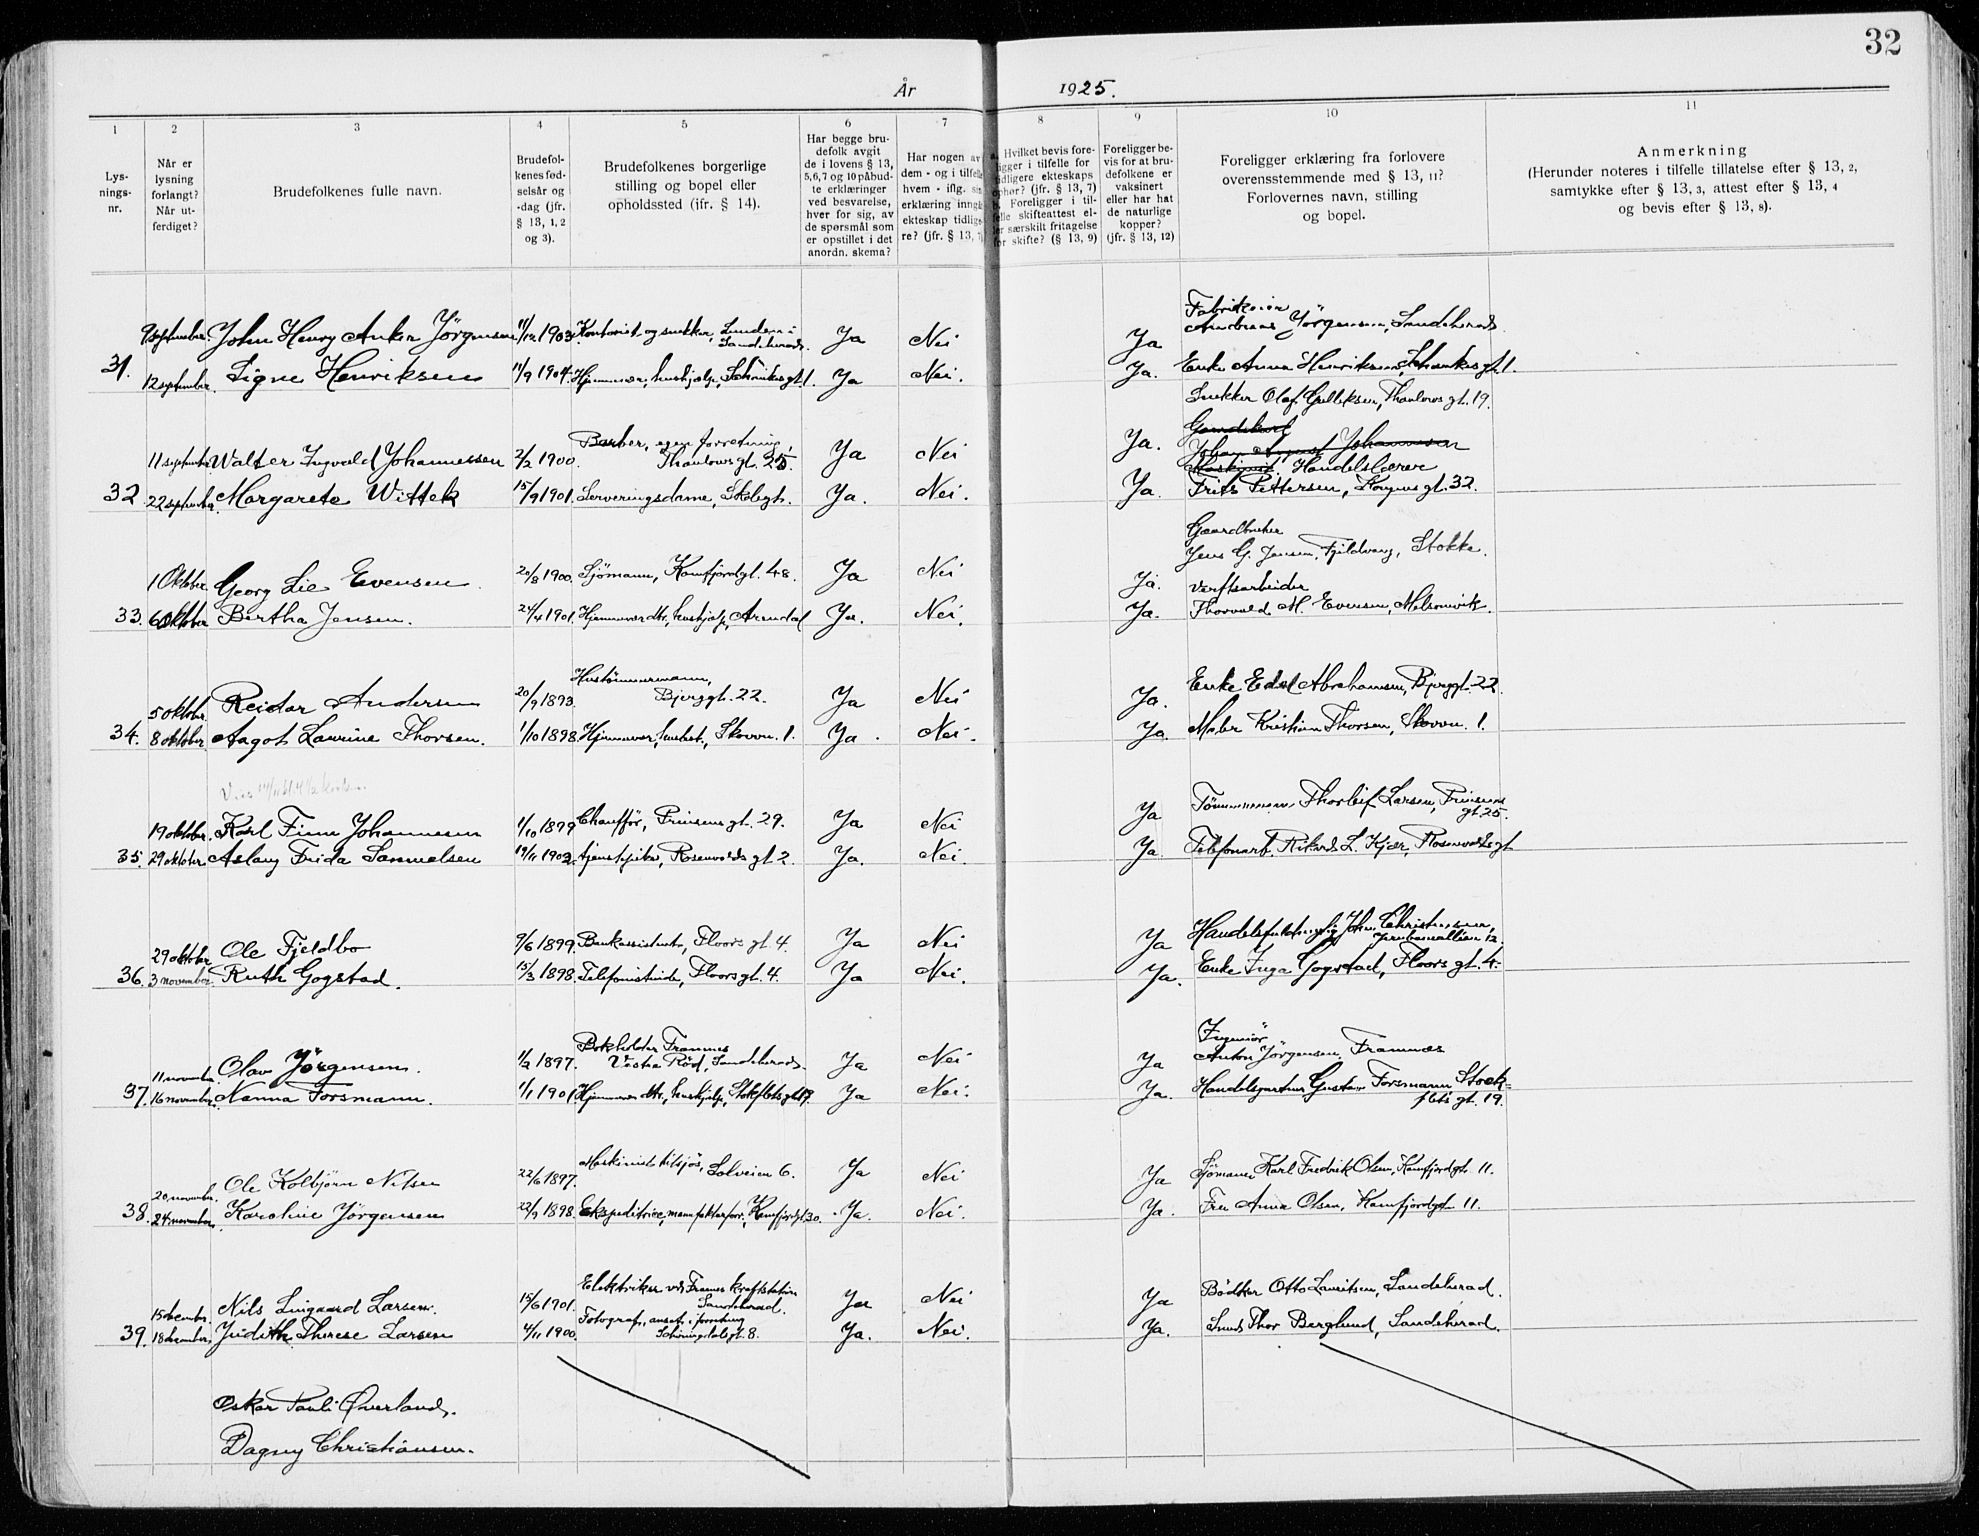 32
År 1925.
1 2 3 4 5 6 7 8 9 10 11
Lys-
nings-
nr.
Når er
lysning
forlangt?
Når ut-
ferdiget?
Brudefolkenes fulle navn.
Brudefol-
kenes fød-
selsår og
-dag (jfr.
§ 13, 1, 2
og 3).
Brudefolkenes borgerlige
stilling og bopel eller
opholdssted (ifr. § 14).
Har begge bru-
defolk avgit
de i lovens § 13,
5,6,7 og 10 påbud-
te erklæringer
ved besvarelse,
hver for sig, av
de spørsmål som
er opstillet i det
anordn. skema?
Har nogen av
dem - og i tilfelle
hvem - iflg. sin
erklæring inngå
ekteskap tidlige-
re? (jfr. § 13, 7
a. Hvilket bevis fore-
ligger i tilfelle for
tidligere ekteskaps
ophør? (jfr. § 13, 7)
b. Foreligger i til-
felle skifteattest el-
ler særskilt fritagelse
for skifte? (§ 13, 9)
Foreligger be-
vis for at bru-
defolkene er
vaksinert
eller har hat
de naturlige
kopper?
(jfr. § 13, 12)
Foreligger erklæring fra forlovere
overensstemmende med § 13, 11?
Forlovernes navn, stilling
og bopel.
Anmerkning
(Herunder noteres i tilfelle tillatelse efter § 13, 2,
samtykke efter § 13, 3, attest efter § 13, 4
og bevis efter § 13, 8).
Fabrikeier
9 september. John Henry Anker Jörgensen 11/12 1903. Kontorist og snekker, Lunden i Sandeherad. Ja Nei Ja Andreas Jörgensen, Sandeherad.
31. 12 september. Signe Henriksen 11/9 1904. Hjemmevær., hushjælp, Schankes gt. 1. Ja Nei. Ja. Enke Anna Henriksen, Schankes gt. 1.
Snekker Olaf Gulliksen, Thaulows gt. 19.
Gaardskarl
11 september. Walter Ingvald Johannessen 2/2 1900. Barber, egen forretning, Thaulows gt. 25. Ja Nei Ja. Johan August Johannesen
Maskinist. Handelslærer
32. 22 september. Margarete Wittek 15/9 1901. Serveringsdame, Skolegt. Ja. Nei. Ja. Frits Pettersen, Kongens gt. 32.
Gaardbruker
Jens G. Jensen, Fjildvang, Stokke.
1 Oktober. Georg Lie Evensen. 20/8 1900. Sjömann, Kamfjordgt. 48. Ja Nei Ja. Verftsarbeider
33. 6 Oktober Bertha Jensen. 24/4 1901. Hjemmevær. dtr., hushjælp, Arendal Ja. Nei. Ja. Thorvald M. Evensen, Melsomvik.
5 oktober. Reidar Andersen 20/9 1893. Hustömmermann, Bjerggt. 22. Ja Nei Ja. Enke Edel Abrahamsen, Bjerggt. 22
34. 8 oktober. Aagot Laurine Thorsen. 1/10 1898. Hjemmevær., husbest., Skovvn. 1. Ja. Nei. Ja. Maler Kristian Thorsen, Skovvn. 1.
19 oktober. Karl Finn Johannesen 1/10 1899 Chauffør, Prinsens gt. 29. Ja Nei Ja Tömmermann Thorleif Larsen, Prinsens gt. 25.
35. 29 oktober Aslaug Frida Samuelsen 19/11 1902. tjenestepike, Rosenvolds gt 2. Ja. Nei. Ja. Telefonarb. Rikard L. Kjær, Rosenvolds gt
29 oktober. Ole Fjeldbo 9/6 1899 Bankassistent, Floors gt. 4. Ja Nei Ja Handelsfuldmegtig John Christensen, Jernbanealléen 12.
36. 3 november. Ruth Gogstad. 15/3 1898. Telefonistinde, Floors gt. 4. Ja Nei. Ja. Enke Inga Gogstad, Floors gt. 4.
Ingeniör
11 november. Olav Jörgensen. 1/2 1897. Bokholder Framnes Vestre Röd, Sandeherad. Ja Nei Ja Anton Jörgensen, Framnæs
37. 16 november. Nanna Forsmann. 1/1 1901. Hjemmevær. dtr., huskjelp, Stokflets gt. 19. Ja Nei. Ja. Handelsgartner Gustav Forsmann Stock-
flets gt. 19.
20 november. Ole Kolbjörn Nilsen 22/6 1897. Maskinist tilsjös, Solveien 6. Ja Nei Ja Sjömann Karl Fredrik Olsen, Kamfjordgt. 11.
38. 24 november. Karoline Jörgensen 22/9 1898. Ekspeditrice, manufakturforr., Kamfjordgt. 30. Ja. Nei. Ja. Fru Anna Olsen, Kamfjordgt 11.
15 desember. Nils Lingaard Larsen. 15/6 1901. Elektriker ved Framnes kraftstation Sandeherad. Ja Nei Ja Bödker Otto Lauritsen, Sandeherad.
39. 18 desember. Judith Therese Larsen 4/11 1900. Fotograf, ansat i forretning Schiringsalsgt. 8. Ja. Nei. Ja. Smed Thor Berglund, Sandeherad.
Oskar Pauli Överland.
Dagny Christiansen.